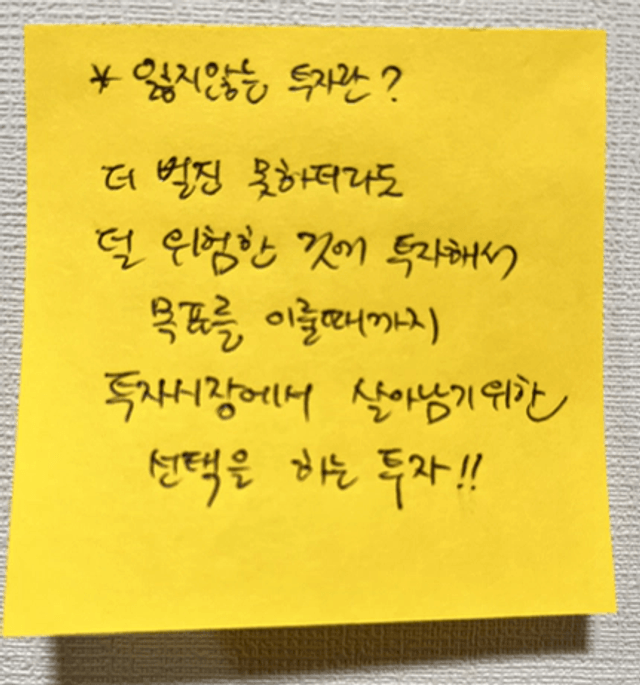 * 잃지않는 투자란?
더 벌진 못하더라도
덜 위험한 것에 투자해서
목표를 이룰때까지
투자시장에서 살아남기위한
선택을 하는 투자!!